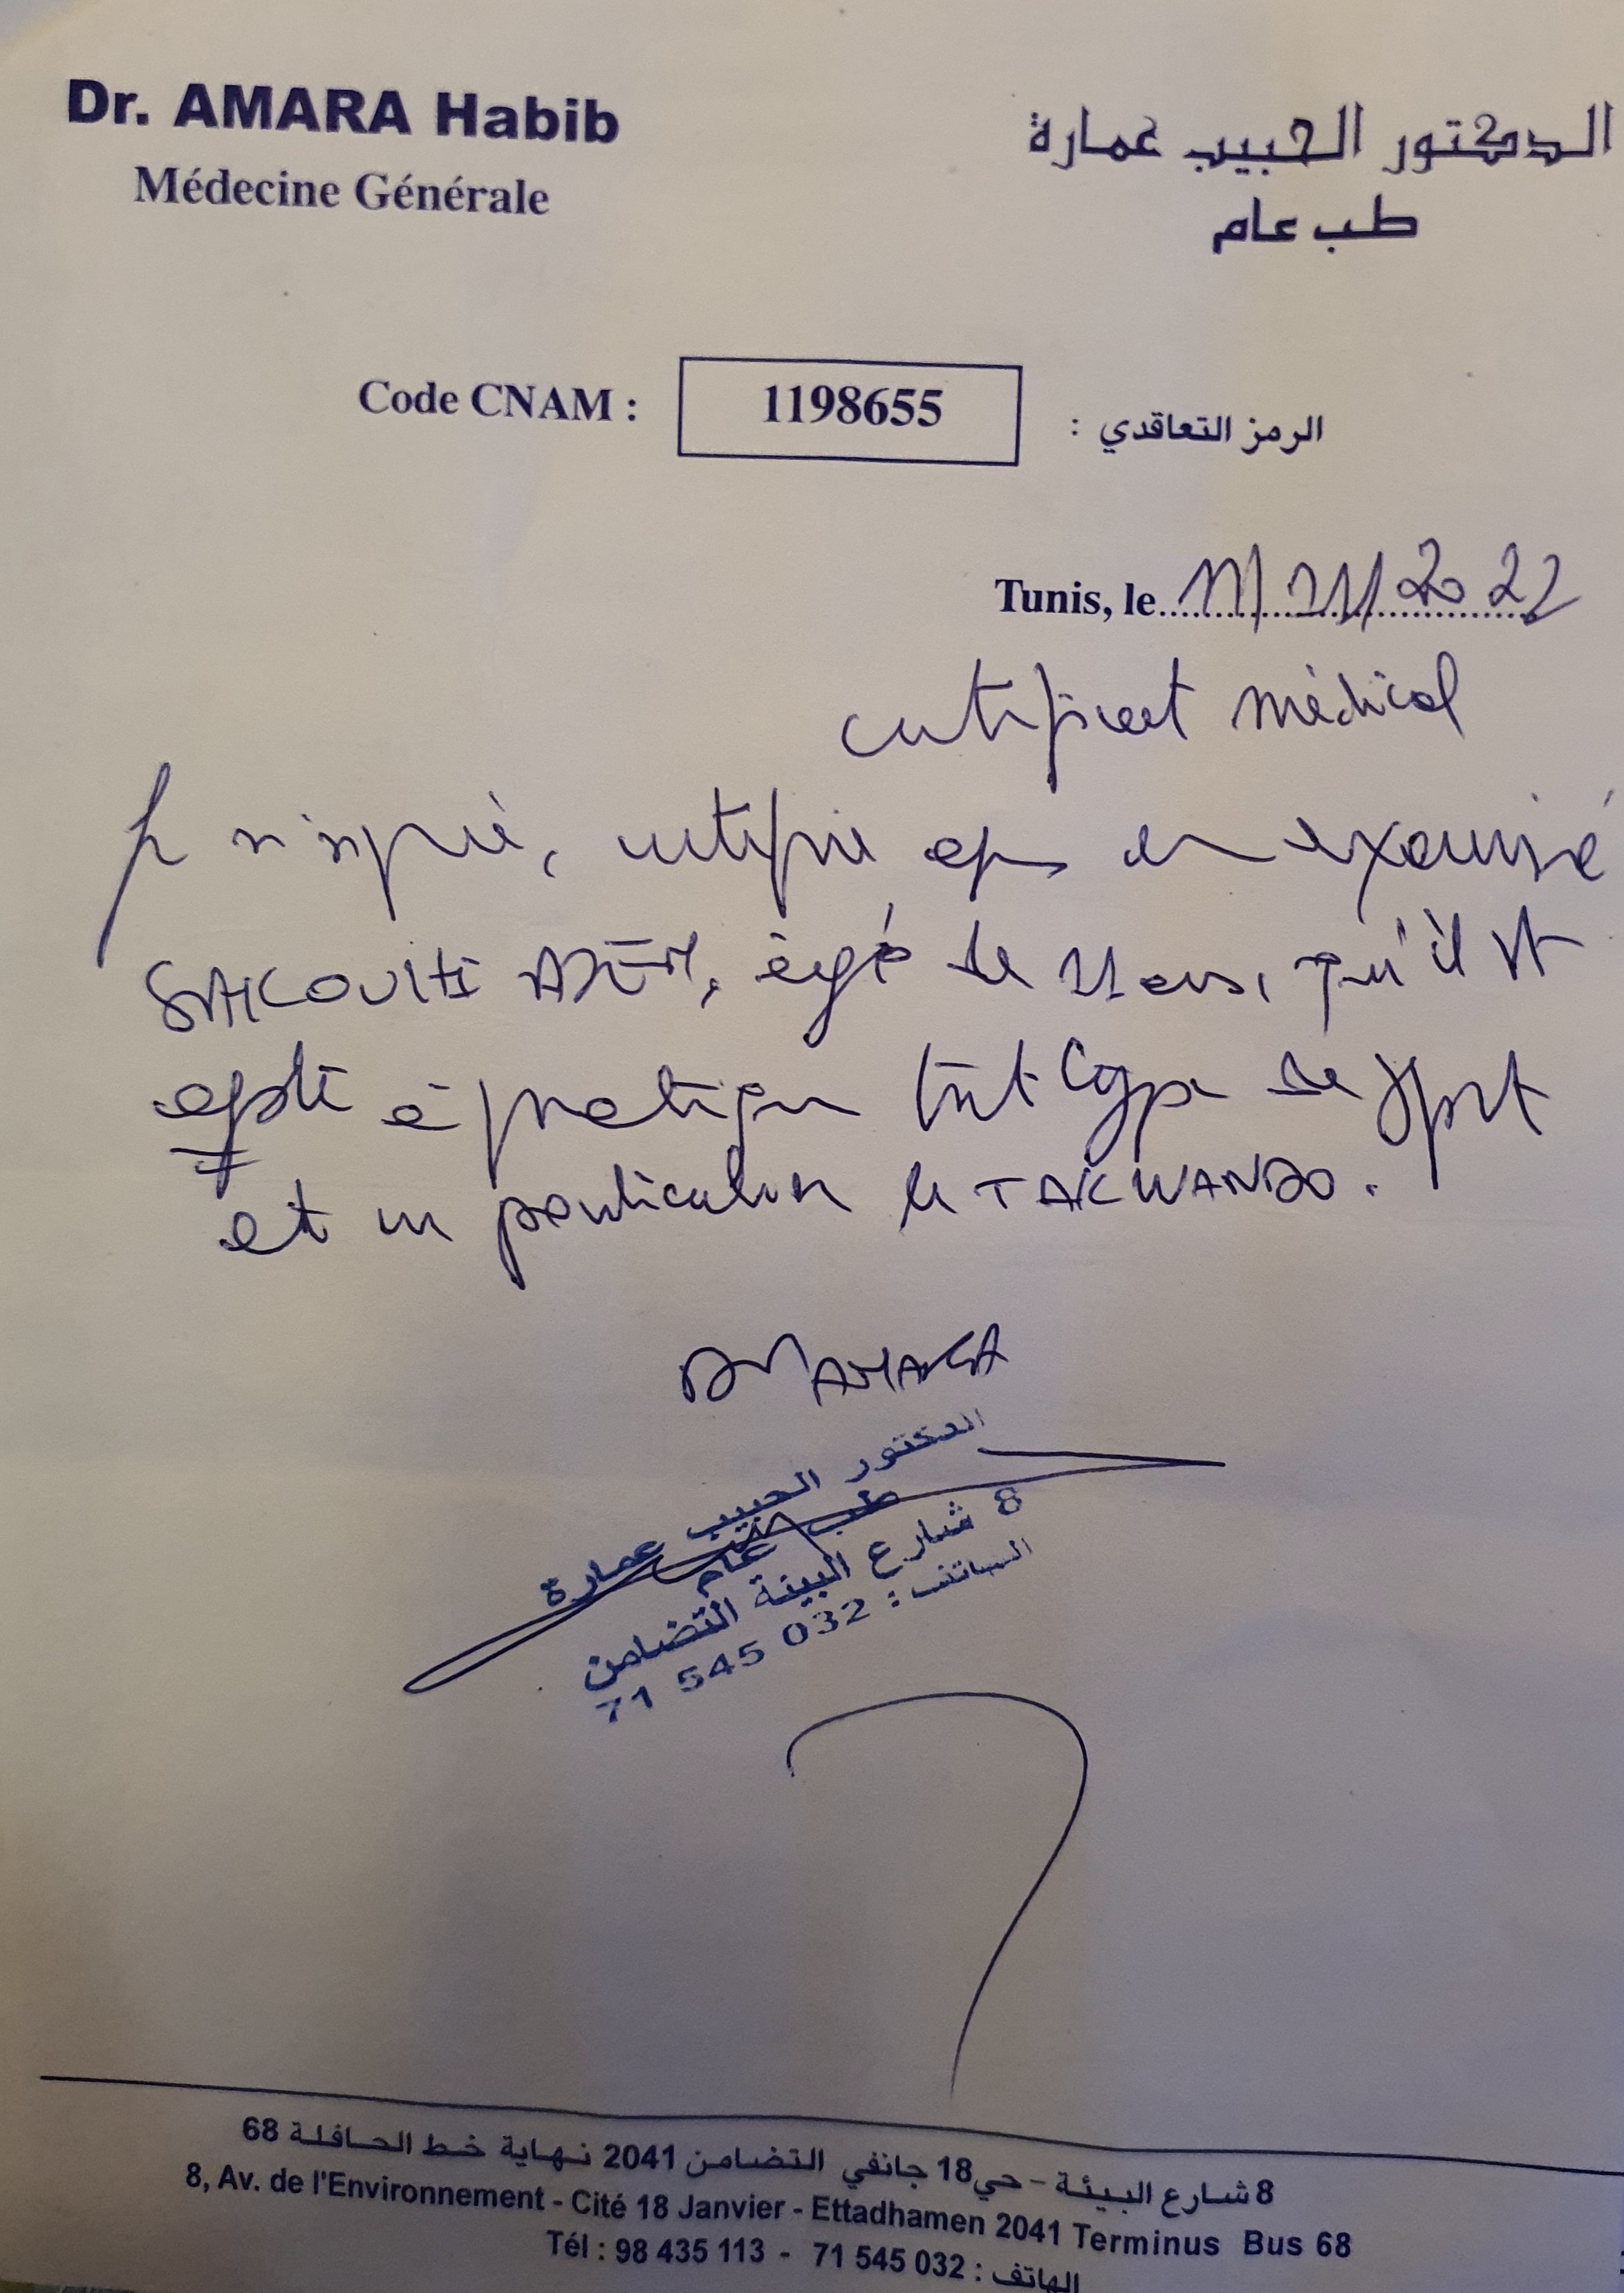 Dr. AMARA Habib
Médecine Générale
الدكتور الحبيب عمارة
طب عام
Code CNAM : 1198655 الرمز التعاقدي :
Tunis, le 11/11/2022
certificat médical
Je soussigné, certifie après en examiné
ADEM, âgé de 11 ans, qu'il est
apte à pratiquer tout type de sport
et en particulier le TAKWANDO.
Dr AMARA
الدكتور الحبيب عمارة
طب عام
8 شارع البيئة التضامن
الهاتف : 71 545 032
8 شارع البيئة - حي 18 جانفي التضامن 2041 نهاية خط الحافلة 68
8, Av. de l'Environnement - Cité 18 Janvier - Ettadhamen 2041 Terminus Bus 68
Tél : 98 435 113 - 71 545 032 : الهاتف